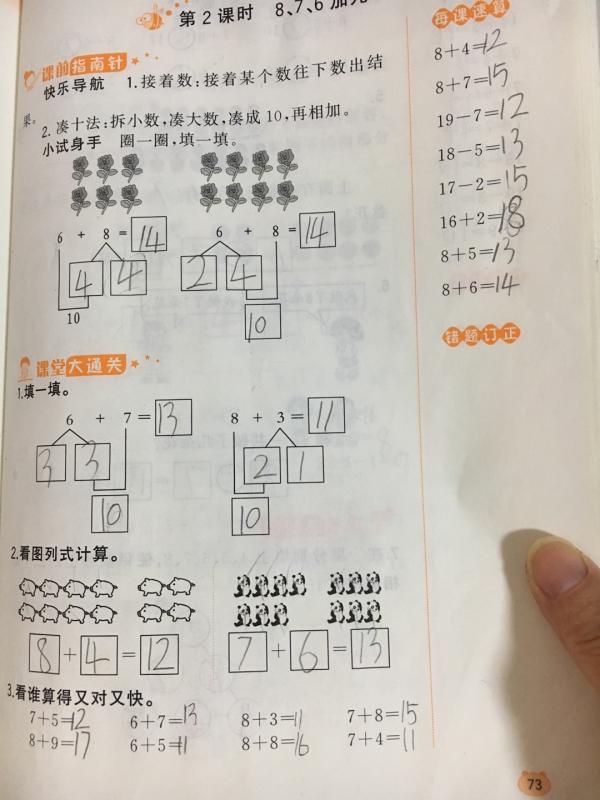 第2课时 8、7、6加几
课前指南针
快乐导航 1.接着数:接着某个数往下数出结
果。
2.凑十法:拆小数,凑大数,凑成10,再相加。
小试身手 圈一圈,填一填。
6 + 8 = 14
4 4
10
6 + 8 = 14
2 4
10
课堂大通关
1.填一填。
6 + 7 = 13
3 3
10
8 + 3 = 11
2 1
10
2.看图列式计算。
8 + 4 = 12
7 + 6 = 13
3.看谁算得又对又快。
7+5=12 6+7=13 8+3=11 7+8=15
8+9=17 6+5=11 8+8=16 7+4=11
每课速算
8+4=12
8+7=15
19-7=12
18-5=13
17-2=15
16+2=18
8+5=13
8+6=14
错题订正
73